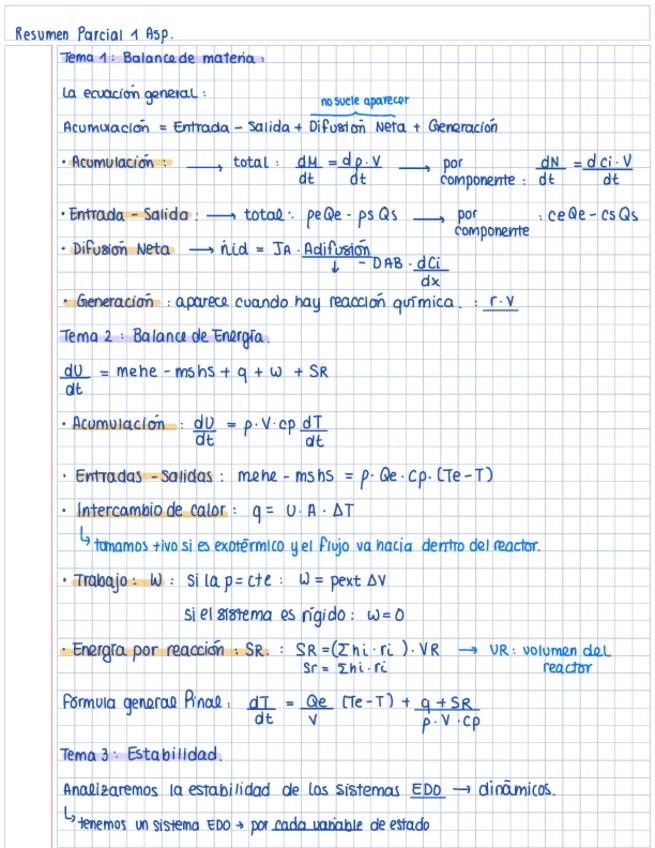 Resumen Parcial 1 Asp.
Tema 1: Balance de materia:
La ecuación general:
no suele aparecer
Acumulación = Entrada - Salida + Difusión Neta + Generación
· Acumulación: → total: dM/dt = dρ·V/dt → por componente: dN/dt = dci·V/dt
· Entrada - Salida: → total: ρeQe - ρsQs → por componente: ceQe - csQs
· Difusión Neta → ṅid = JA · Adifusión
↓ - DAB · dCi/dx
· Generación: aparece cuando hay reacción química. : r·V
Tema 2: Balance de Energía.
dU/dt = mehe - mshs + q + w + SR
· Acumulación: dU/dt = ρ·V·cp dT/dt
· Entradas - Salidas: mehe - mshs = ρ·Qe·cp·(Te-T)
· Intercambio de calor: q = U·A·ΔT
↳ tomamos +ivo si es exotérmico y el flujo va hacia dentro del reactor.
· Trabajo: W: si la p = cte: W = pext ΔV
si el sistema es rígido: w=0
· Energía por reacción: SR. : SR = (Σhi·ri)·VR → VR: volumen del reactor
Sr = Σhi·ri
Fórmula general final: dT/dt = Qe/V (Te-T) + q+SR/ρ·V·cp
Tema 3: Estabilidad.
Analizaremos la estabilidad de los sistemas EDO → dinámicos.
↳ tenemos un sistema EDO → por cada variable de estado